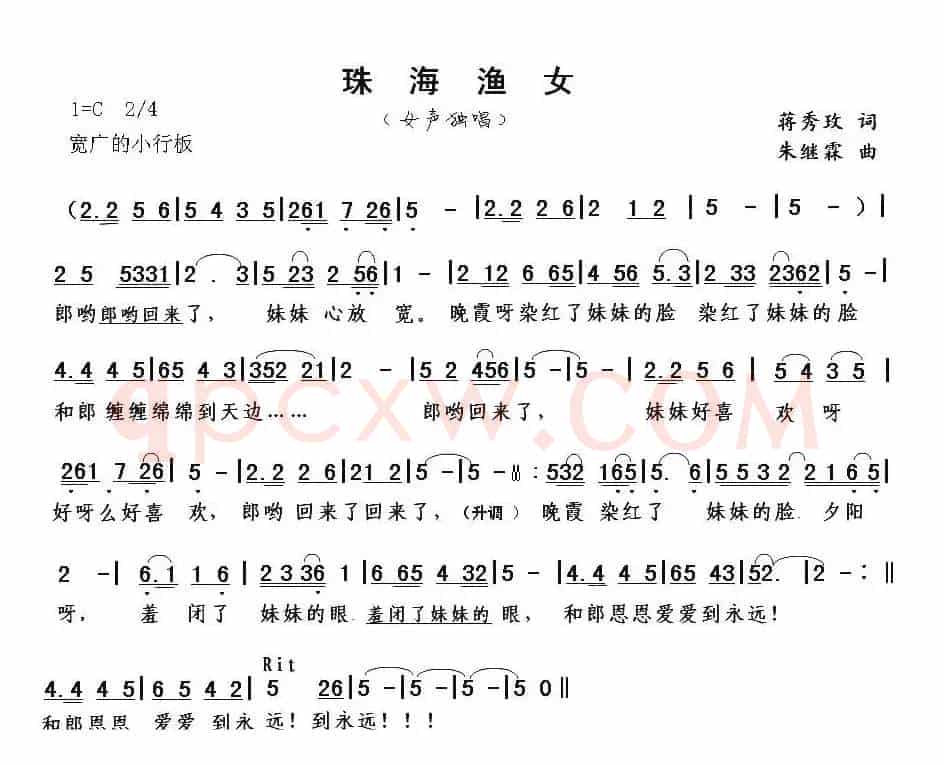 珠海渔女
1=C 2/4
（女声独唱）
宽广的小行板
蒋秀玫 词
朱继霖 曲
（2.2 5 6|5 4 3 5|261 7 26|5 -|2.2 2 6|2 1 2|5 -|5 -）|
2 5 5331|2 . 3|5 23 2 56|1 -|2 12 6 65|4 56 5.3|2 33 2362|5 -|
郎哟郎哟回来了， 妹妹 心放 宽。 晚霞呀染红了妹妹的脸 染红了妹妹的脸
4.4 4 5|65 4 3|352 21|2 -|5 2 456|5 -|5 -|2.2 5 6|5 4 3 5|
和郎 缠缠绵绵到天边…… 郎哟回来了， 妹妹好喜 欢 呀
qpcxw.com
261 7 26|5 -|2.2 2 6|21 2|5 -|5 - :532 165|5. 6|5 5 3 2|2 1 6 5|
好呀么好喜 欢， 郎哟 回来了回来了，（升调） 晚霞 染红了 妹妹的脸. 夕阳
2 -|6.1 1 6|2 3 36 1|6 65 4 32|5 -|4.4 4 5|65 43|52.|2 -:‖
呀， 羞 闭了 妹妹的眼. 羞闭了妹妹的 眼， 和郎恩恩爱爱到永远！
Rit
4.4 4 5|6 5 4 2|5 26|5 -|5 -|5 -|5 0‖
和郎恩恩 爱爱 到永 远！到永远！！！